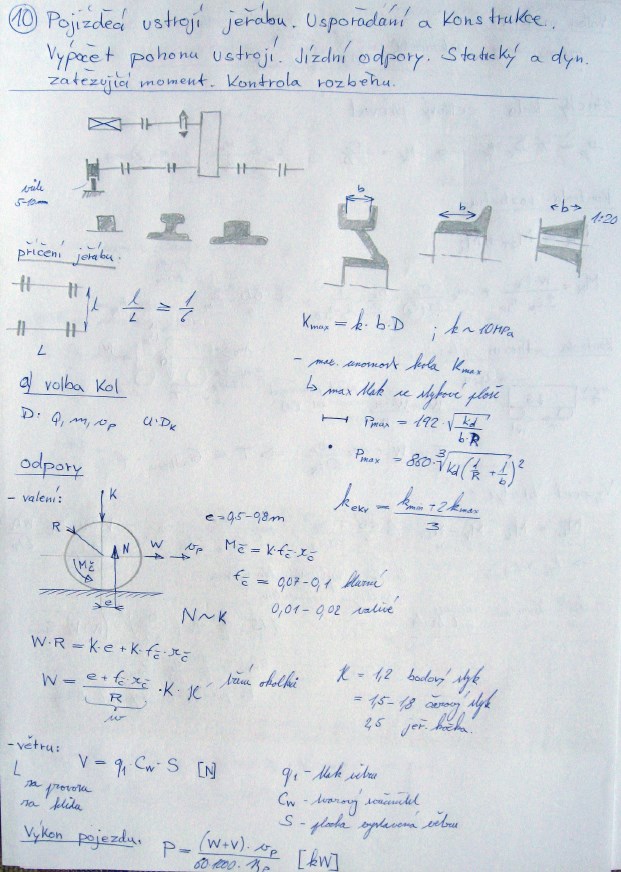 10 Pojížděcí ustrojí jeřábu. Uspořádání a Konstrukce.
Výpočet pohonu ustrojí. Jízdní odpory. Statický a dyn.
zatěžující moment. Kontrola rozběhu.
vůle
5-10mm
b
b
b
1:20
příčení jeřábu.
l
l/L ≥ 1/6
L
Kmax = k · b · D ; k ~ 10MPa
- max. únosnost kola Kmax
↳ max tlak ve stykové ploše
a) volba Kol
D: Q, m, vp
Pmax = 192 · √(kd / b·R)
• Pmax = 860 · ∛(kd (1/R + 1/b)²)
kekv = (kmin + 2kmax) / 3
odpory
- valení:
K
R
N
W
vp
Mč
e
e = 0,5-0,8m
Mč = K·fč·rč
fč = 0,07-0,1 kluzné
0,01-0,02 valivé
N ~ K
W·R = K·e + K·fč·rč
W = (e + fč·rč) / R · K · ϰ tření okolků
w
ϰ = 1,2 bodový styk
= 1,5-1,8 čárový styk
2,5 jeř. kočka.
- větru:
V = q1 · Cw · S [N]
na provoz
na klidu
q1 - tlak větru
Cw - tvarový součinitel
S - plocha vystavená větru
Výkon pojezdu.
P = (W+V) · vp / 60·1000·ηp [kW]